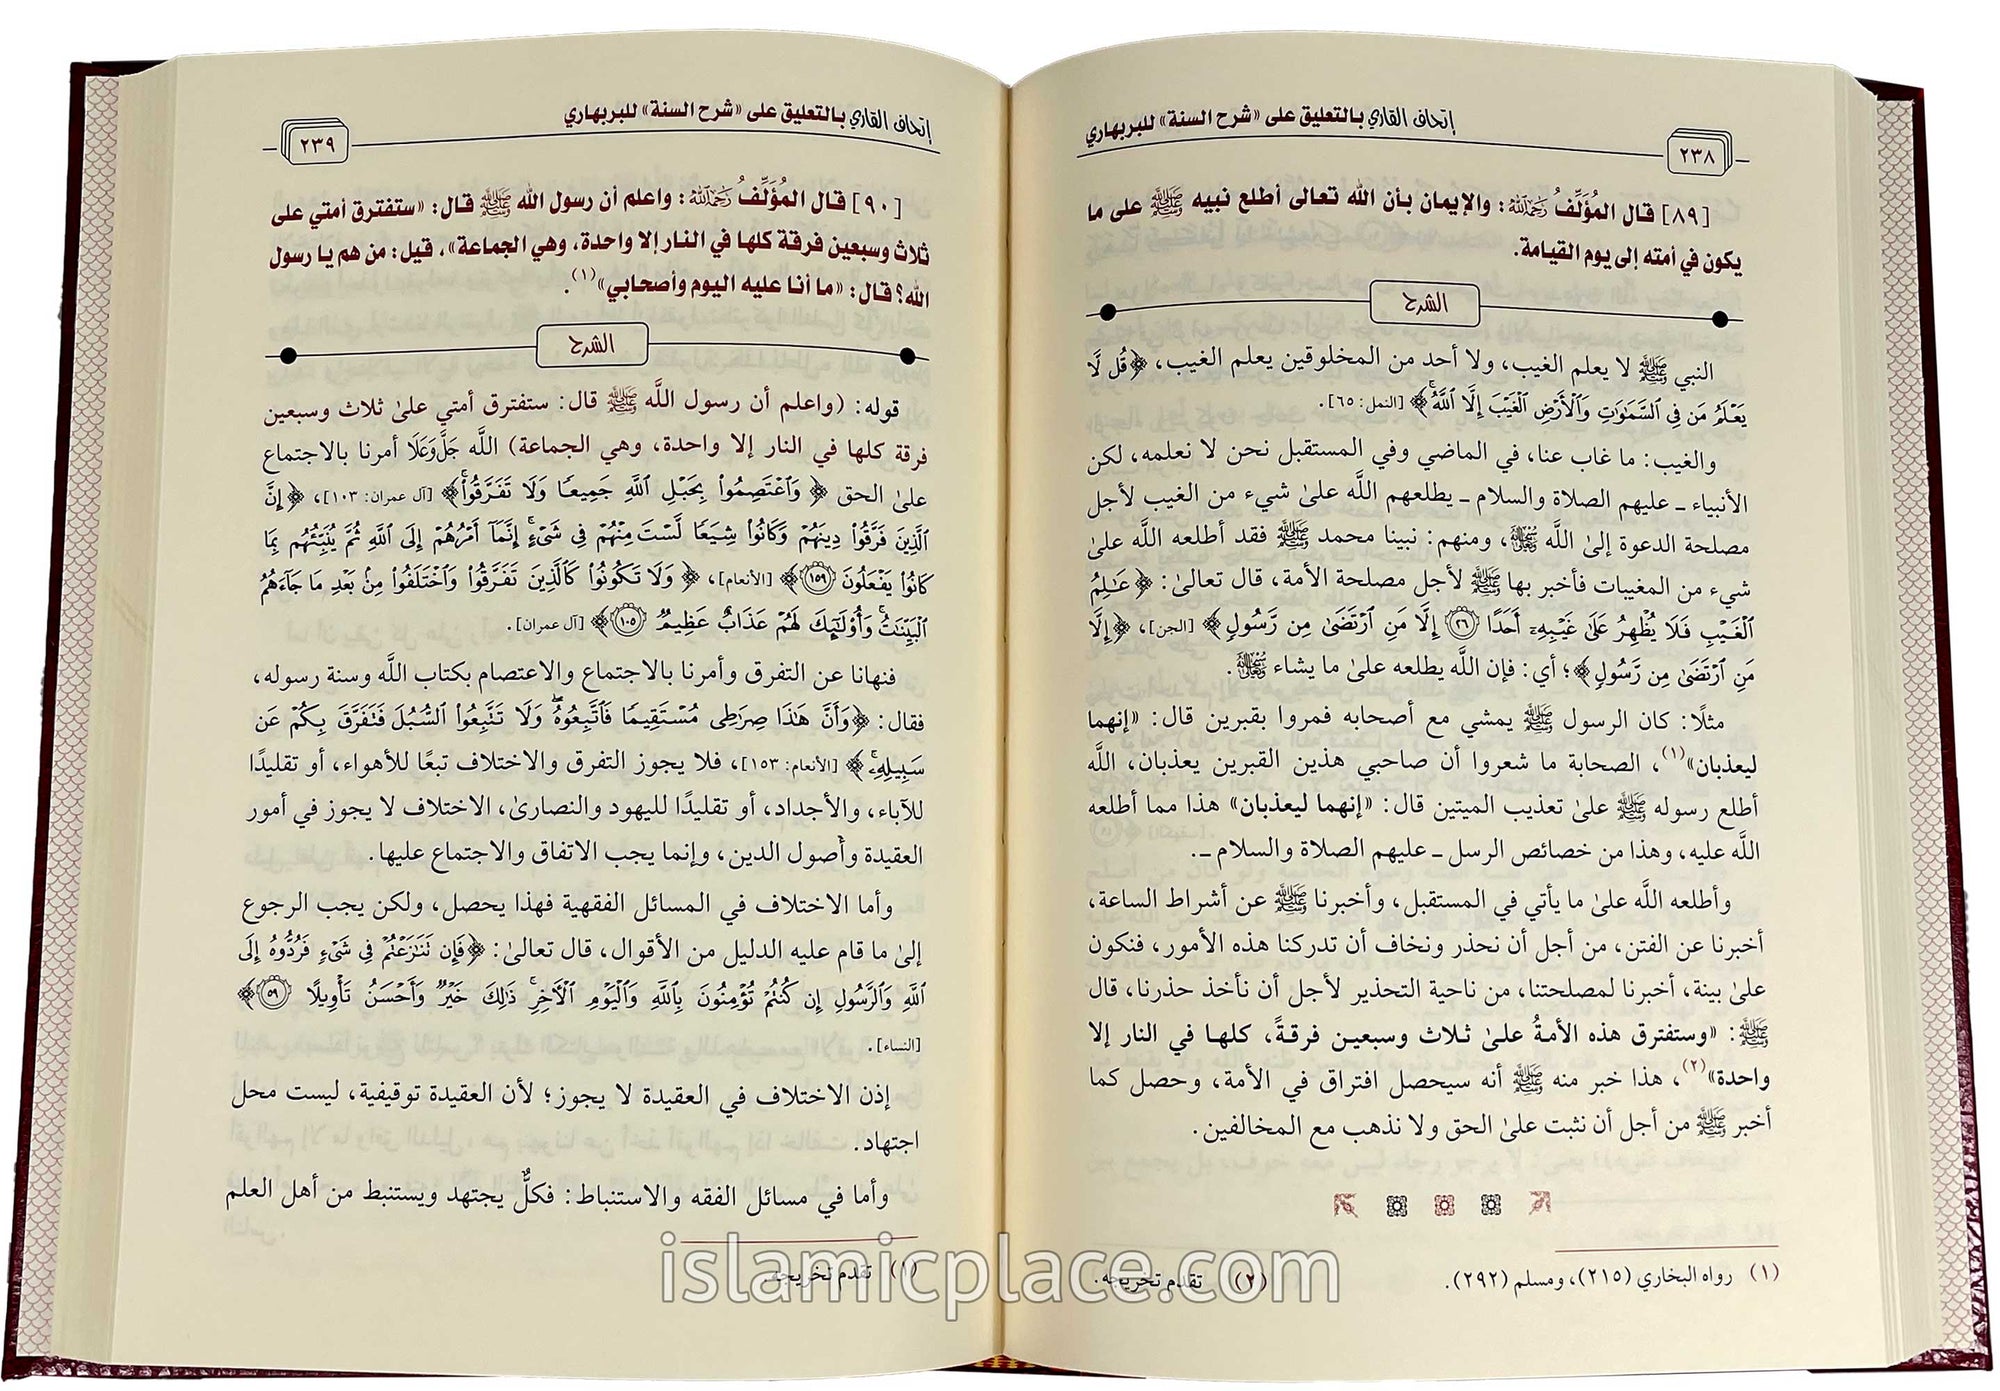 إتحاف القاري بالتعليق على «شرح السنة» للبربهاري
٢٣٨
[٨٩] قال المؤلِّفُ رَحِمَهُ اللَّهُ: والإيمان بأن الله تعالى أطلع نبيه ﷺ على ما
يكون في أمته إلى يوم القيامة.
الشرح
النبي ﷺ لا يعلم الغيب، ولا أحد من المخلوقين يعلم الغيب، ﴿قُل لَّا
يَعْلَمُ مَن فِي السَّمَاوَاتِ وَالْأَرْضِ الْغَيْبَ إِلَّا اللَّهُ﴾ [النمل: ٦٥].
والغيب: ما غاب عنا، في الماضي وفي المستقبل نحن لا نعلمه، لكن
الأنبياء ـ عليهم الصلاة والسلام ـ يطلعهم اللَّه علىٰ شيء من الغيب لأجل
مصلحة الدعوة إلىٰ اللَّه ﷻ، ومنهم: نبينا محمد ﷺ فقد أطلعه اللَّه علىٰ
شيء من المغيبات فأخبر بها ﷺ لأجل مصلحة الأمة، قال تعالىٰ: ﴿عَالِمُ
الْغَيْبِ فَلَا يُظْهِرُ عَلَىٰ غَيْبِهِ أَحَدًا ٢٦ إِلَّا مَنِ ارْتَضَىٰ مِن رَّسُولٍ﴾ [الجن]، ﴿إِلَّا
مَنِ ارْتَضَىٰ مِن رَّسُولٍ﴾؛ أي: فإن اللَّه يطلعه علىٰ ما يشاء ﷻ.
مثلًا: كان الرسول ﷺ يمشي مع أصحابه فمروا بقبرين قال: «إنهما
ليعذبان»(١)، الصحابة ما شعروا أن صاحبي هذين القبرين يعذبان، اللَّه
أطلع رسوله ﷺ علىٰ تعذيب الميتين قال: «إنهما ليعذبان» هذا مما أطلعه
اللَّه عليه، وهذا من خصائص الرسل ـ عليهم الصلاة والسلام ـ.
وأطلعه اللَّه علىٰ ما يأتي في المستقبل، وأخبرنا ﷺ عن أشراط الساعة،
أخبرنا عن الفتن، من أجل أن نحذر ونخاف أن تدركنا هذه الأمور، فنكون
علىٰ بينة، أخبرنا لمصلحتنا، من ناحية التحذير لأجل أن نأخذ حذرنا، قال
ﷺ: «وستفترق هذه الأمةُ علىٰ ثلاث وسبعين فرقةً، كلها في النار إلا
واحدة»(٢)، هذا خبر منه ﷺ أنه سيحصل افتراق في الأمة، وحصل كما
أخبر ﷺ من أجل أن نثبت علىٰ الحق ولا نذهب مع المخالفين.
(١) رواه البخاري (٢١٥)، ومسلم (٢٩٢).
(٢) تقدم تخريجه.
إتحاف القاري بالتعليق على «شرح السنة» للبربهاري
٢٣٩
[٩٠] قال المؤلِّفُ رَحِمَهُ اللَّهُ: واعلم أن رسول الله ﷺ قال: «ستفترق أمتي على
ثلاث وسبعين فرقة كلها في النار إلا واحدة، وهي الجماعة»، قيل: من هم يا رسول
الله؟ قال: «ما أنا عليه اليوم وأصحابي»(١).
الشرح
قوله: (واعلم أن رسول اللَّه ﷺ قال: ستفترق أمتي علىٰ ثلاث وسبعين
فرقة كلها في النار إلا واحدة، وهي الجماعة) اللَّه جَلَّوَعَلَا أمرنا بالاجتماع
علىٰ الحق ﴿وَاعْتَصِمُوا بِحَبْلِ اللَّهِ جَمِيعًا وَلَا تَفَرَّقُوا﴾ [آل عمران: ١٠٣]، ﴿إِنَّ
الَّذِينَ فَرَّقُوا دِينَهُمْ وَكَانُوا شِيَعًا لَّسْتَ مِنْهُمْ فِي شَيْءٍ إِنَّمَا أَمْرُهُمْ إِلَى اللَّهِ ثُمَّ يُنَبِّئُهُم بِمَا
كَانُوا يَفْعَلُونَ ١٥٩﴾ [الأنعام]، ﴿وَلَا تَكُونُوا كَالَّذِينَ تَفَرَّقُوا وَاخْتَلَفُوا مِن بَعْدِ مَا جَاءَهُمُ
الْبَيِّنَاتُ وَأُولَٰئِكَ لَهُمْ عَذَابٌ عَظِيمٌ ١٠٥﴾ [آل عمران].
فنهانا عن التفرق وأمرنا بالاجتماع والاعتصام بكتاب اللَّه وسنة رسوله،
فقال: ﴿وَأَنَّ هَٰذَا صِرَاطِي مُسْتَقِيمًا فَاتَّبِعُوهُ وَلَا تَتَّبِعُوا السُّبُلَ فَتَفَرَّقَ بِكُمْ عَن
سَبِيلِهِ﴾ [الأنعام: ١٥٣]، فلا يجوز التفرق والاختلاف تبعًا للأهواء، أو تقليدًا
للآباء، والأجداد، أو تقليدًا لليهود والنصارىٰ، الاختلاف لا يجوز في أمور
العقيدة وأصول الدين، وإنما يجب الاتفاق والاجتماع عليها.
وأما الاختلاف في المسائل الفقهية فهذا يحصل، ولكن يجب الرجوع
إلىٰ ما قام عليه الدليل من الأقوال، قال تعالىٰ: ﴿فَإِن تَنَازَعْتُمْ فِي شَيْءٍ فَرُدُّوهُ إِلَى
اللَّهِ وَالرَّسُولِ إِن كُنتُمْ تُؤْمِنُونَ بِاللَّهِ وَالْيَوْمِ الْآخِرِ ذَٰلِكَ خَيْرٌ وَأَحْسَنُ تَأْوِيلًا ٥٩﴾
[النساء].
إذن الاختلاف في العقيدة لا يجوز؛ لأن العقيدة توقيفية، ليست محل
اجتهاد.
وأما في مسائل الفقه والاستنباط: فكلٌّ يجتهد ويستنبط من أهل العلم
(١) تقدم تخريجه.
islamicplace.com